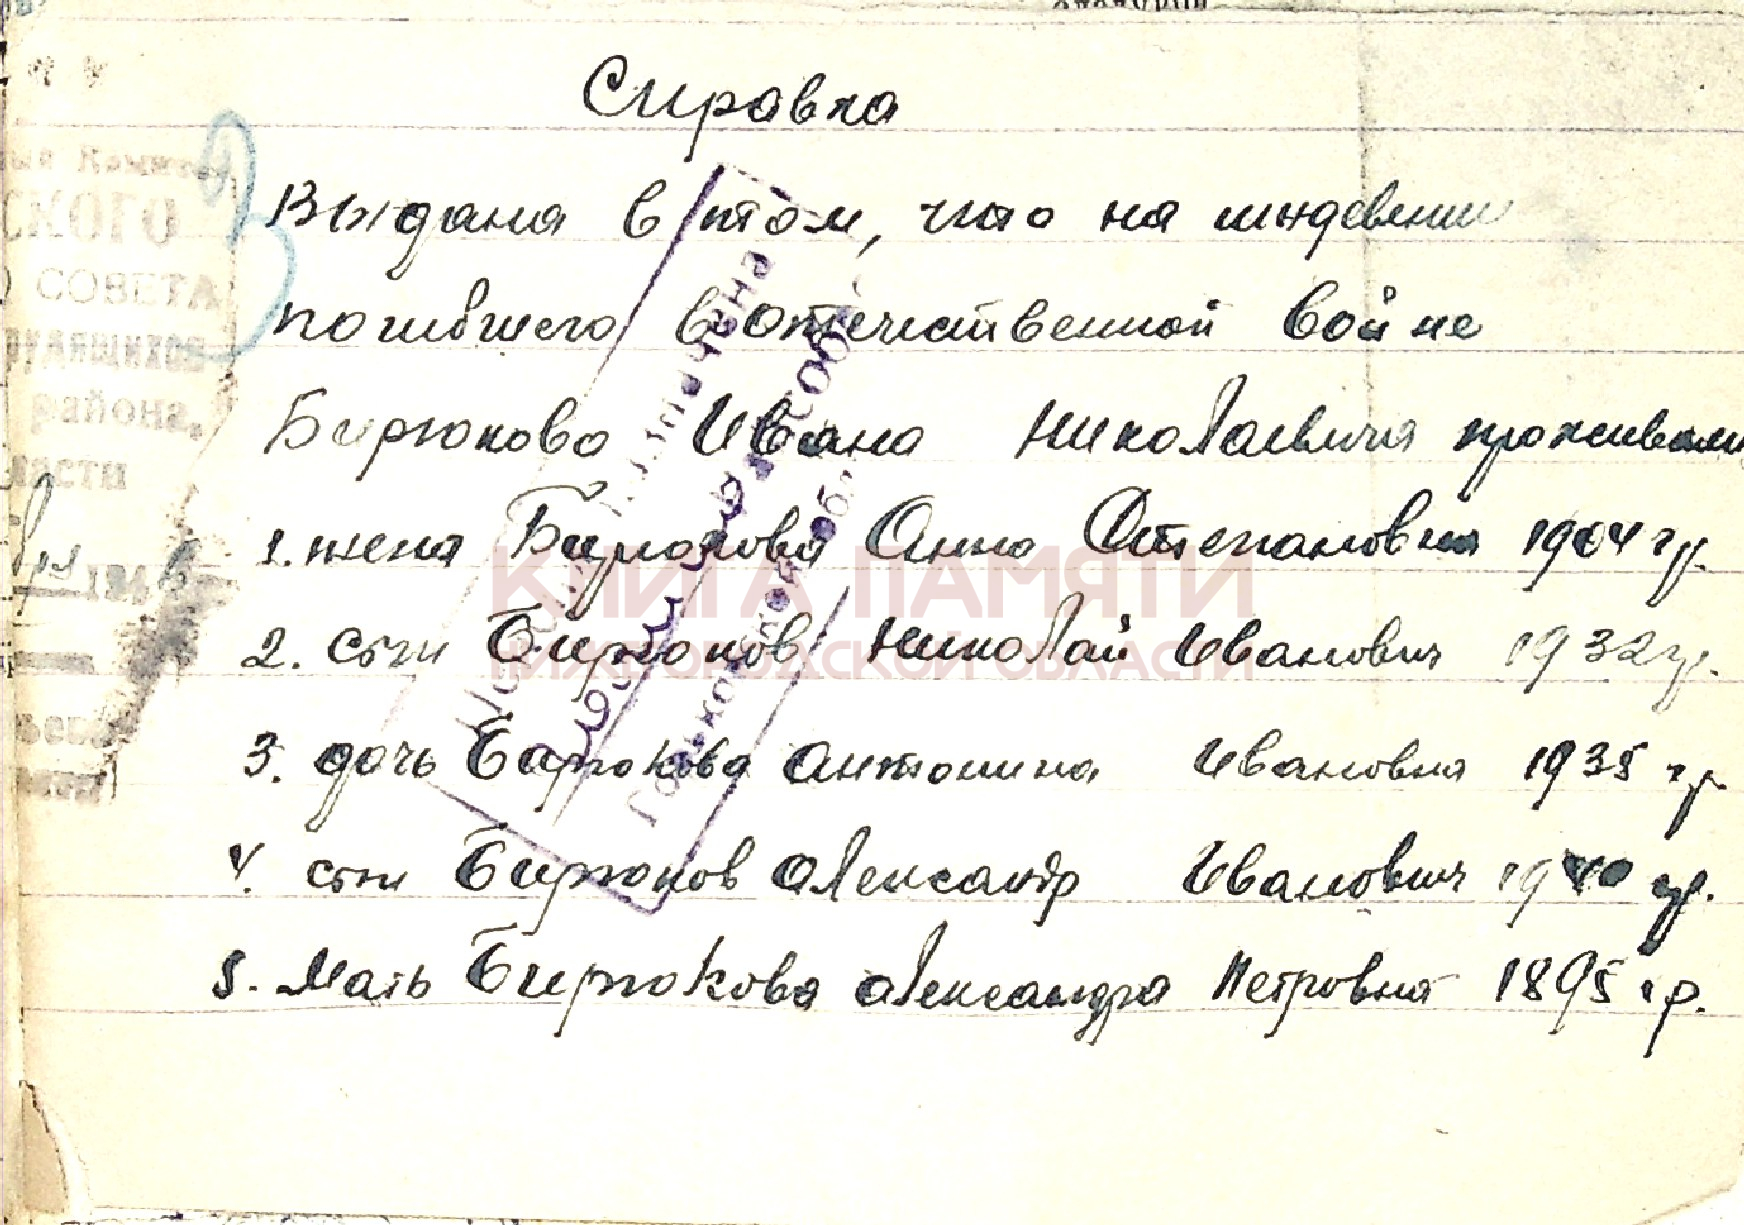 Справка
Выдана в том, что на иждевении
погибшего в отечественной войне
Бирюкова Ивана Николаевича проживали
1. жена Бирюкова Анна Степановна 1904 гр.
2. сын Бирюков Николай Иванович 1932 гр.
3. дочь Бирюкова Антонина Ивановна 1935 гр
4. сын Бирюков Александр Иванович 1940 гр.
5. Мать Бирюкова Александра Петровна 1895 гр.
СКОГО
СОВЕТА
района,
КНИГА ПАМЯТИ
НИЖЕГОРОДСКОЙ ОБЛАСТИ